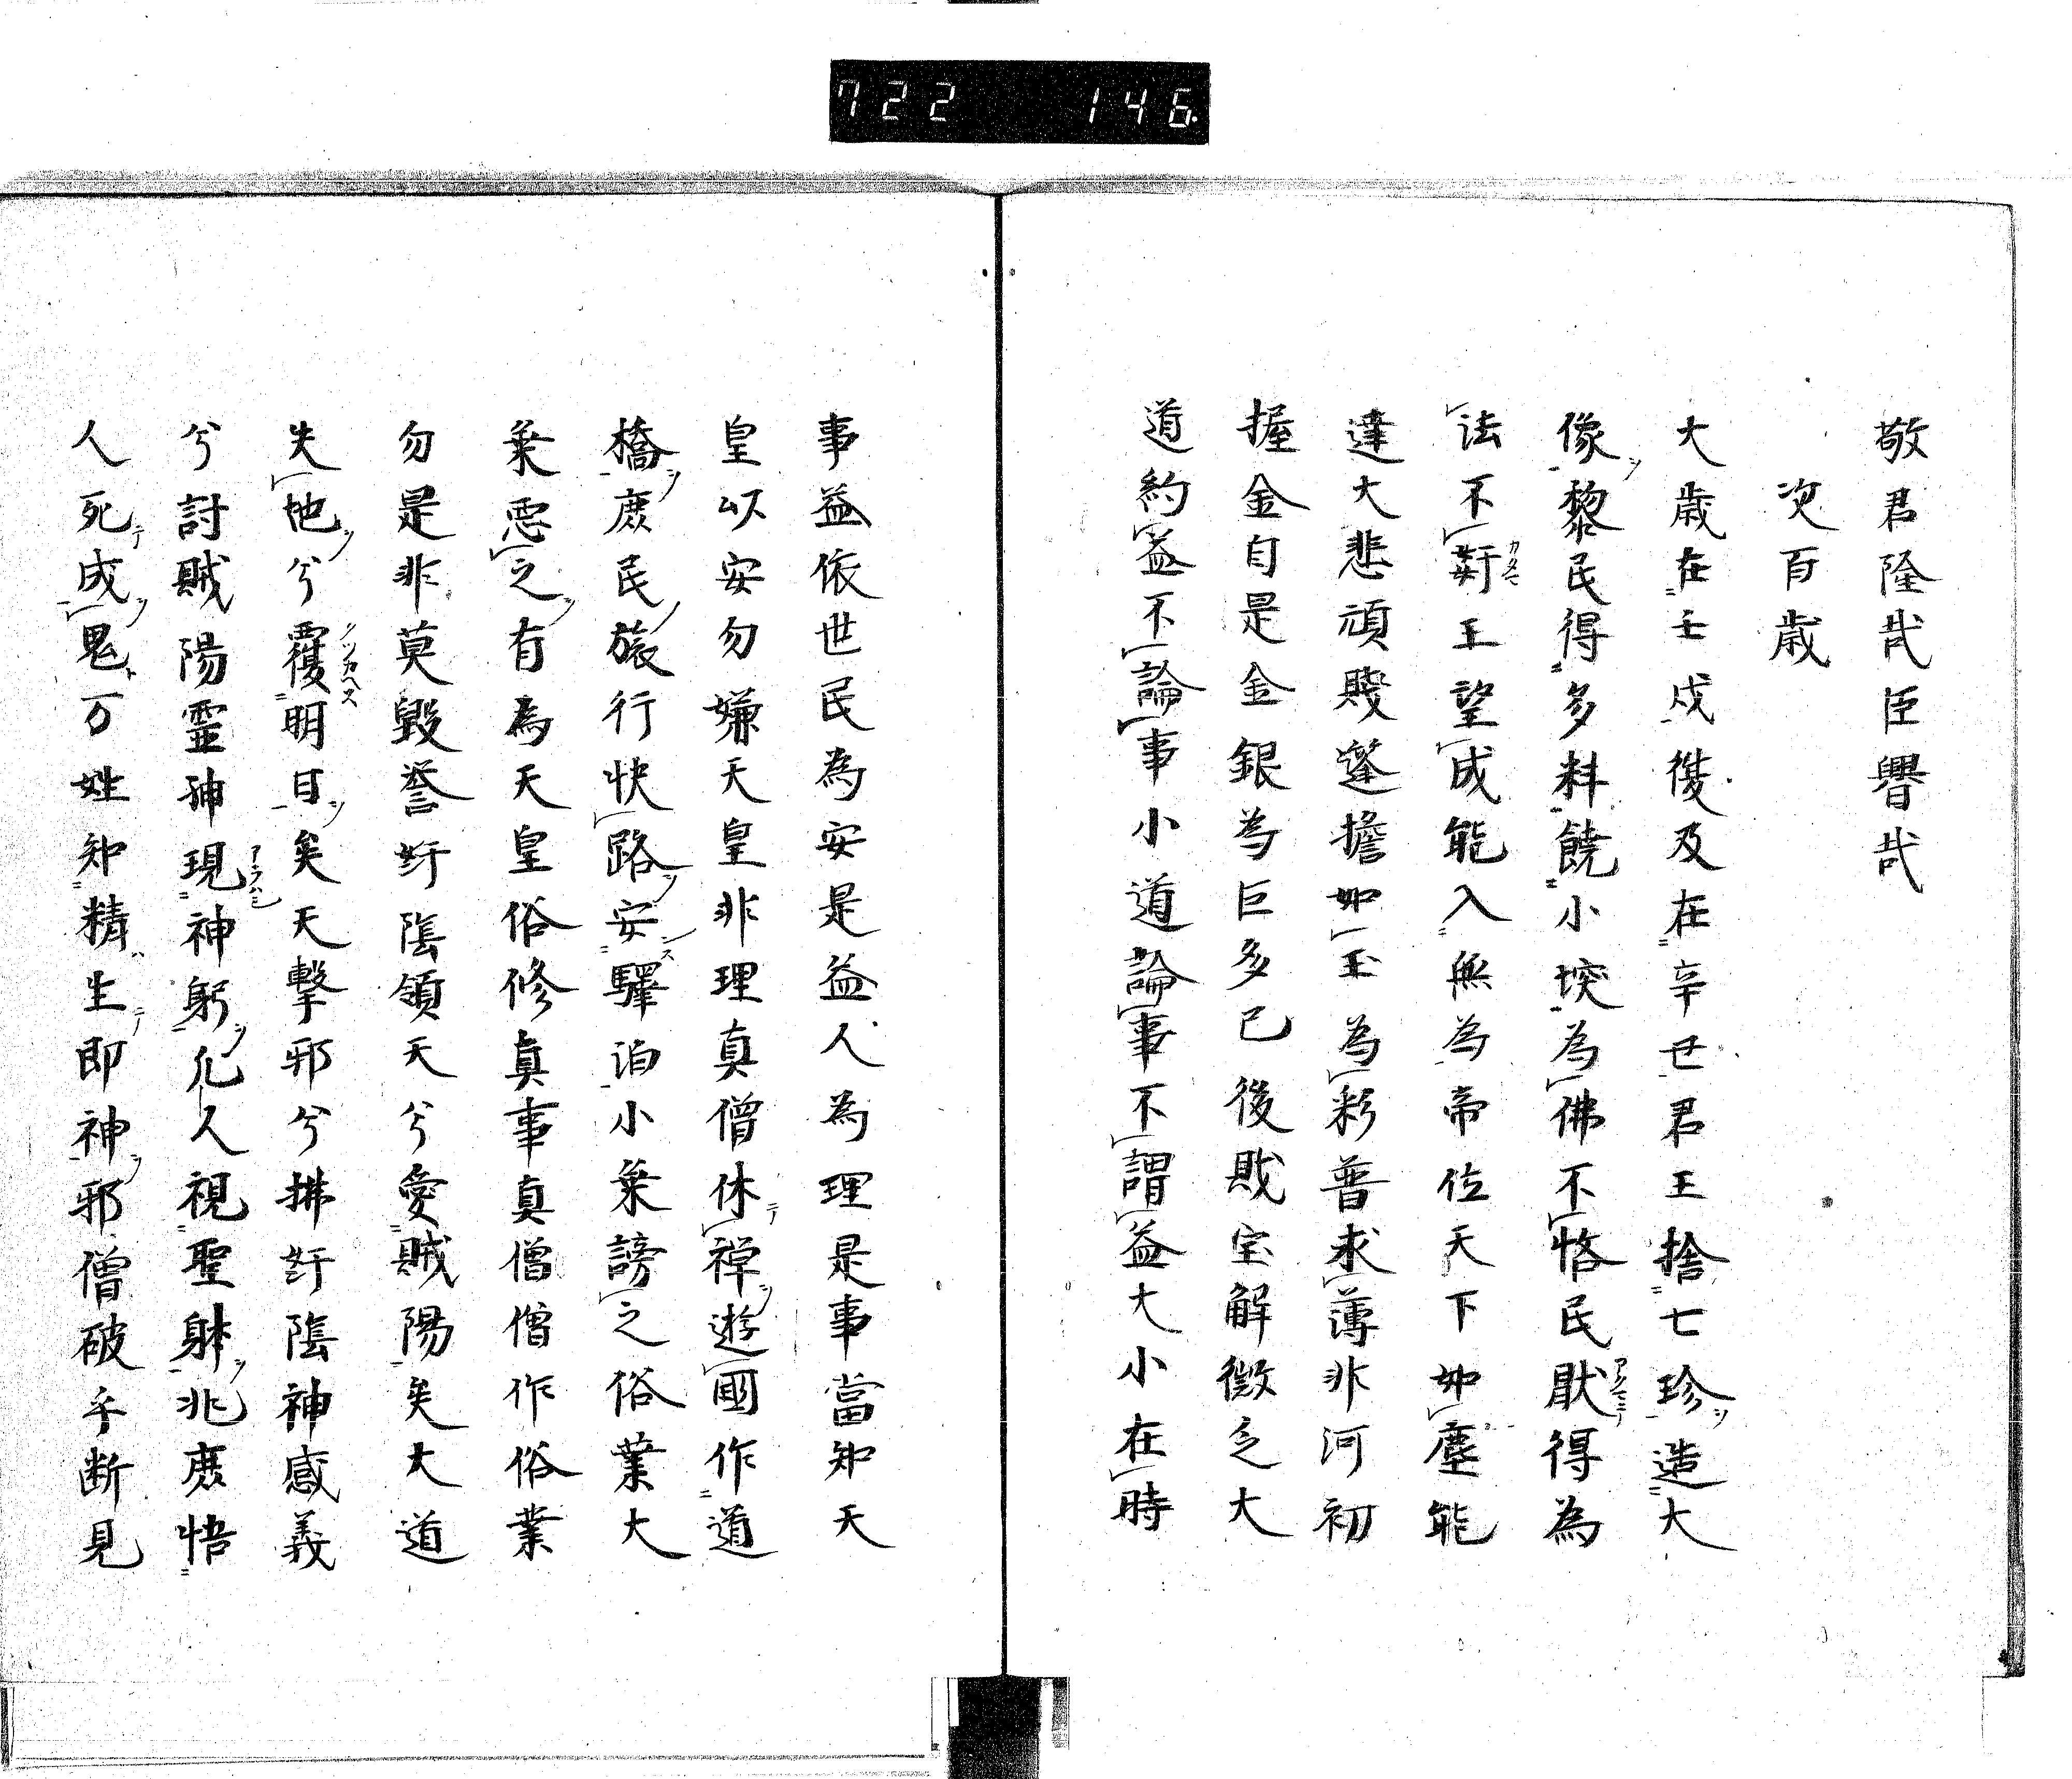 722 146
敬君隆哉臣譽哉
次百歳
大歳在壬戌復及在辛丑君王捨七珍造大
像黎民得多料饒小埈為佛不悋民猒得為
法不姧王望成能入無為帝位天下如塵能
達大悲頑賤蓬擔如玉為彩普求薄非河初
握金自是金銀為巨多已後賎宝解徴乏大
道約益不論事小道論事不謂益大小在時
事益依世民為安是益人為理是事當知天
皇以安勿嫌天皇非理真僧休禅遊國作道
橋庶民旅行快路安驛泊小棄謗之俗業大
棄悪之有為天皇俗修真事真僧僧作俗業
勿是非莫毀誉姧陰領天兮愛賊陽矣大道
失地兮覆明日矣天撃邪兮拂姧陰神感義
兮討賊陽靈神現神躬化人視聖躰兆庶悟
人死成鬼万姓知精生即神邪僧破乎断見